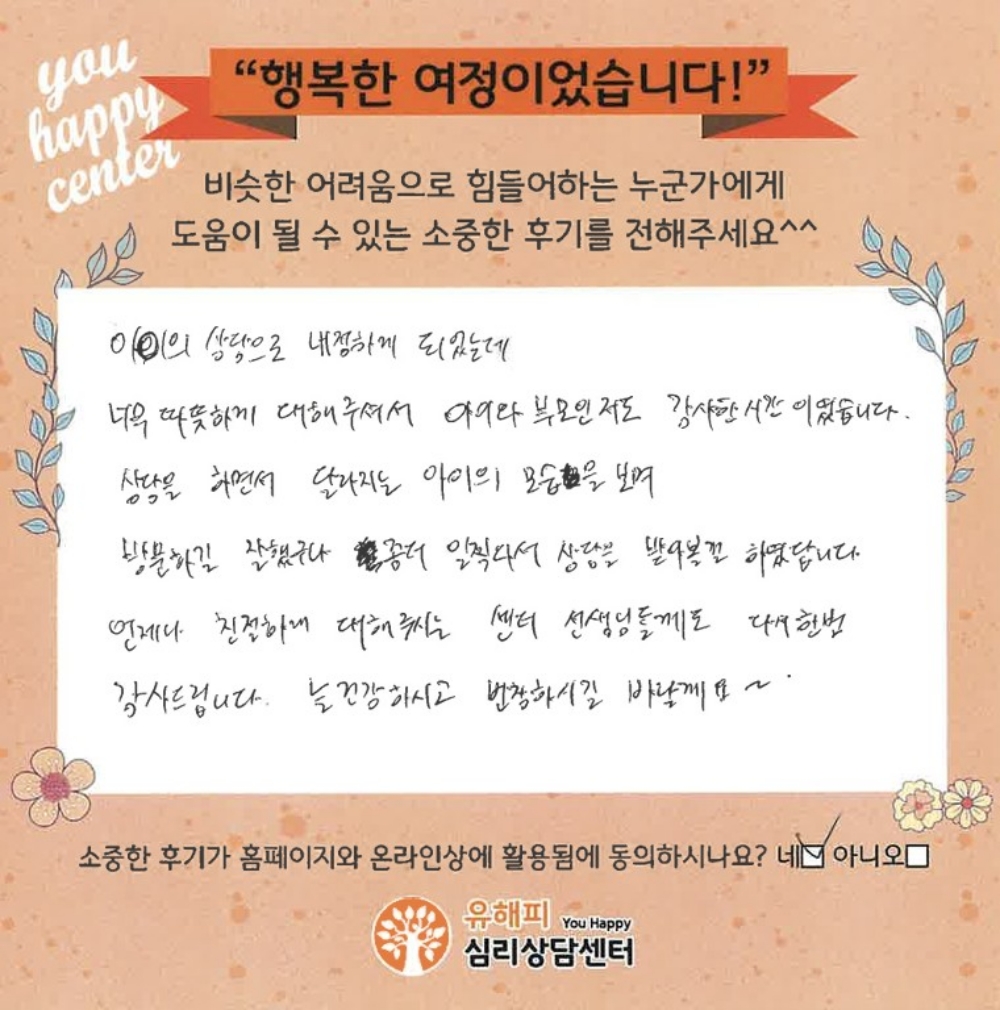 you
happy
center
“행복한 여정이었습니다!”
비슷한 어려움으로 힘들어하는 누군가에게
도움이 될 수 있는 소중한 후기를 전해주세요^^
아이의 상담으로 내정하게 되었는데
너무 따뜻하게 대해주셔서 아이와 부모인 저도 감사한 시간이였습니다.
상담을 하면서 달라지는 아이의 모습을 보며
방문하길 잘했구나 좀더 일찍와서 상담을 받아볼껄 하였답니다.
언제나 친절하게 대해주시는 센터 선생님들께도 다시한번
감사드립니다. 늘 건강하시고 번창하시길 바랄께요~
소중한 후기가 홈페이지와 온라인상에 활용됨에 동의하시나요? 네 아니오
유해피 You Happy
심리상담센터